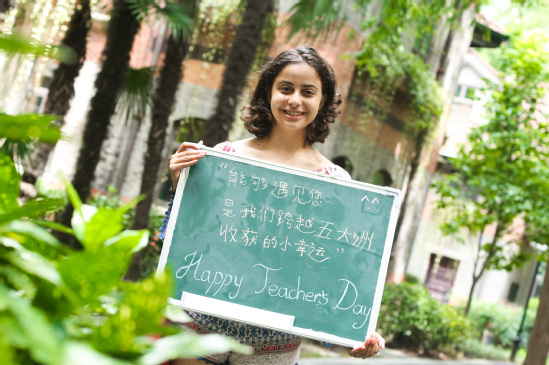 “能够遇见您 ^^
是我们跨越五大洲
收获的小幸运”
Happy Teacher's Day